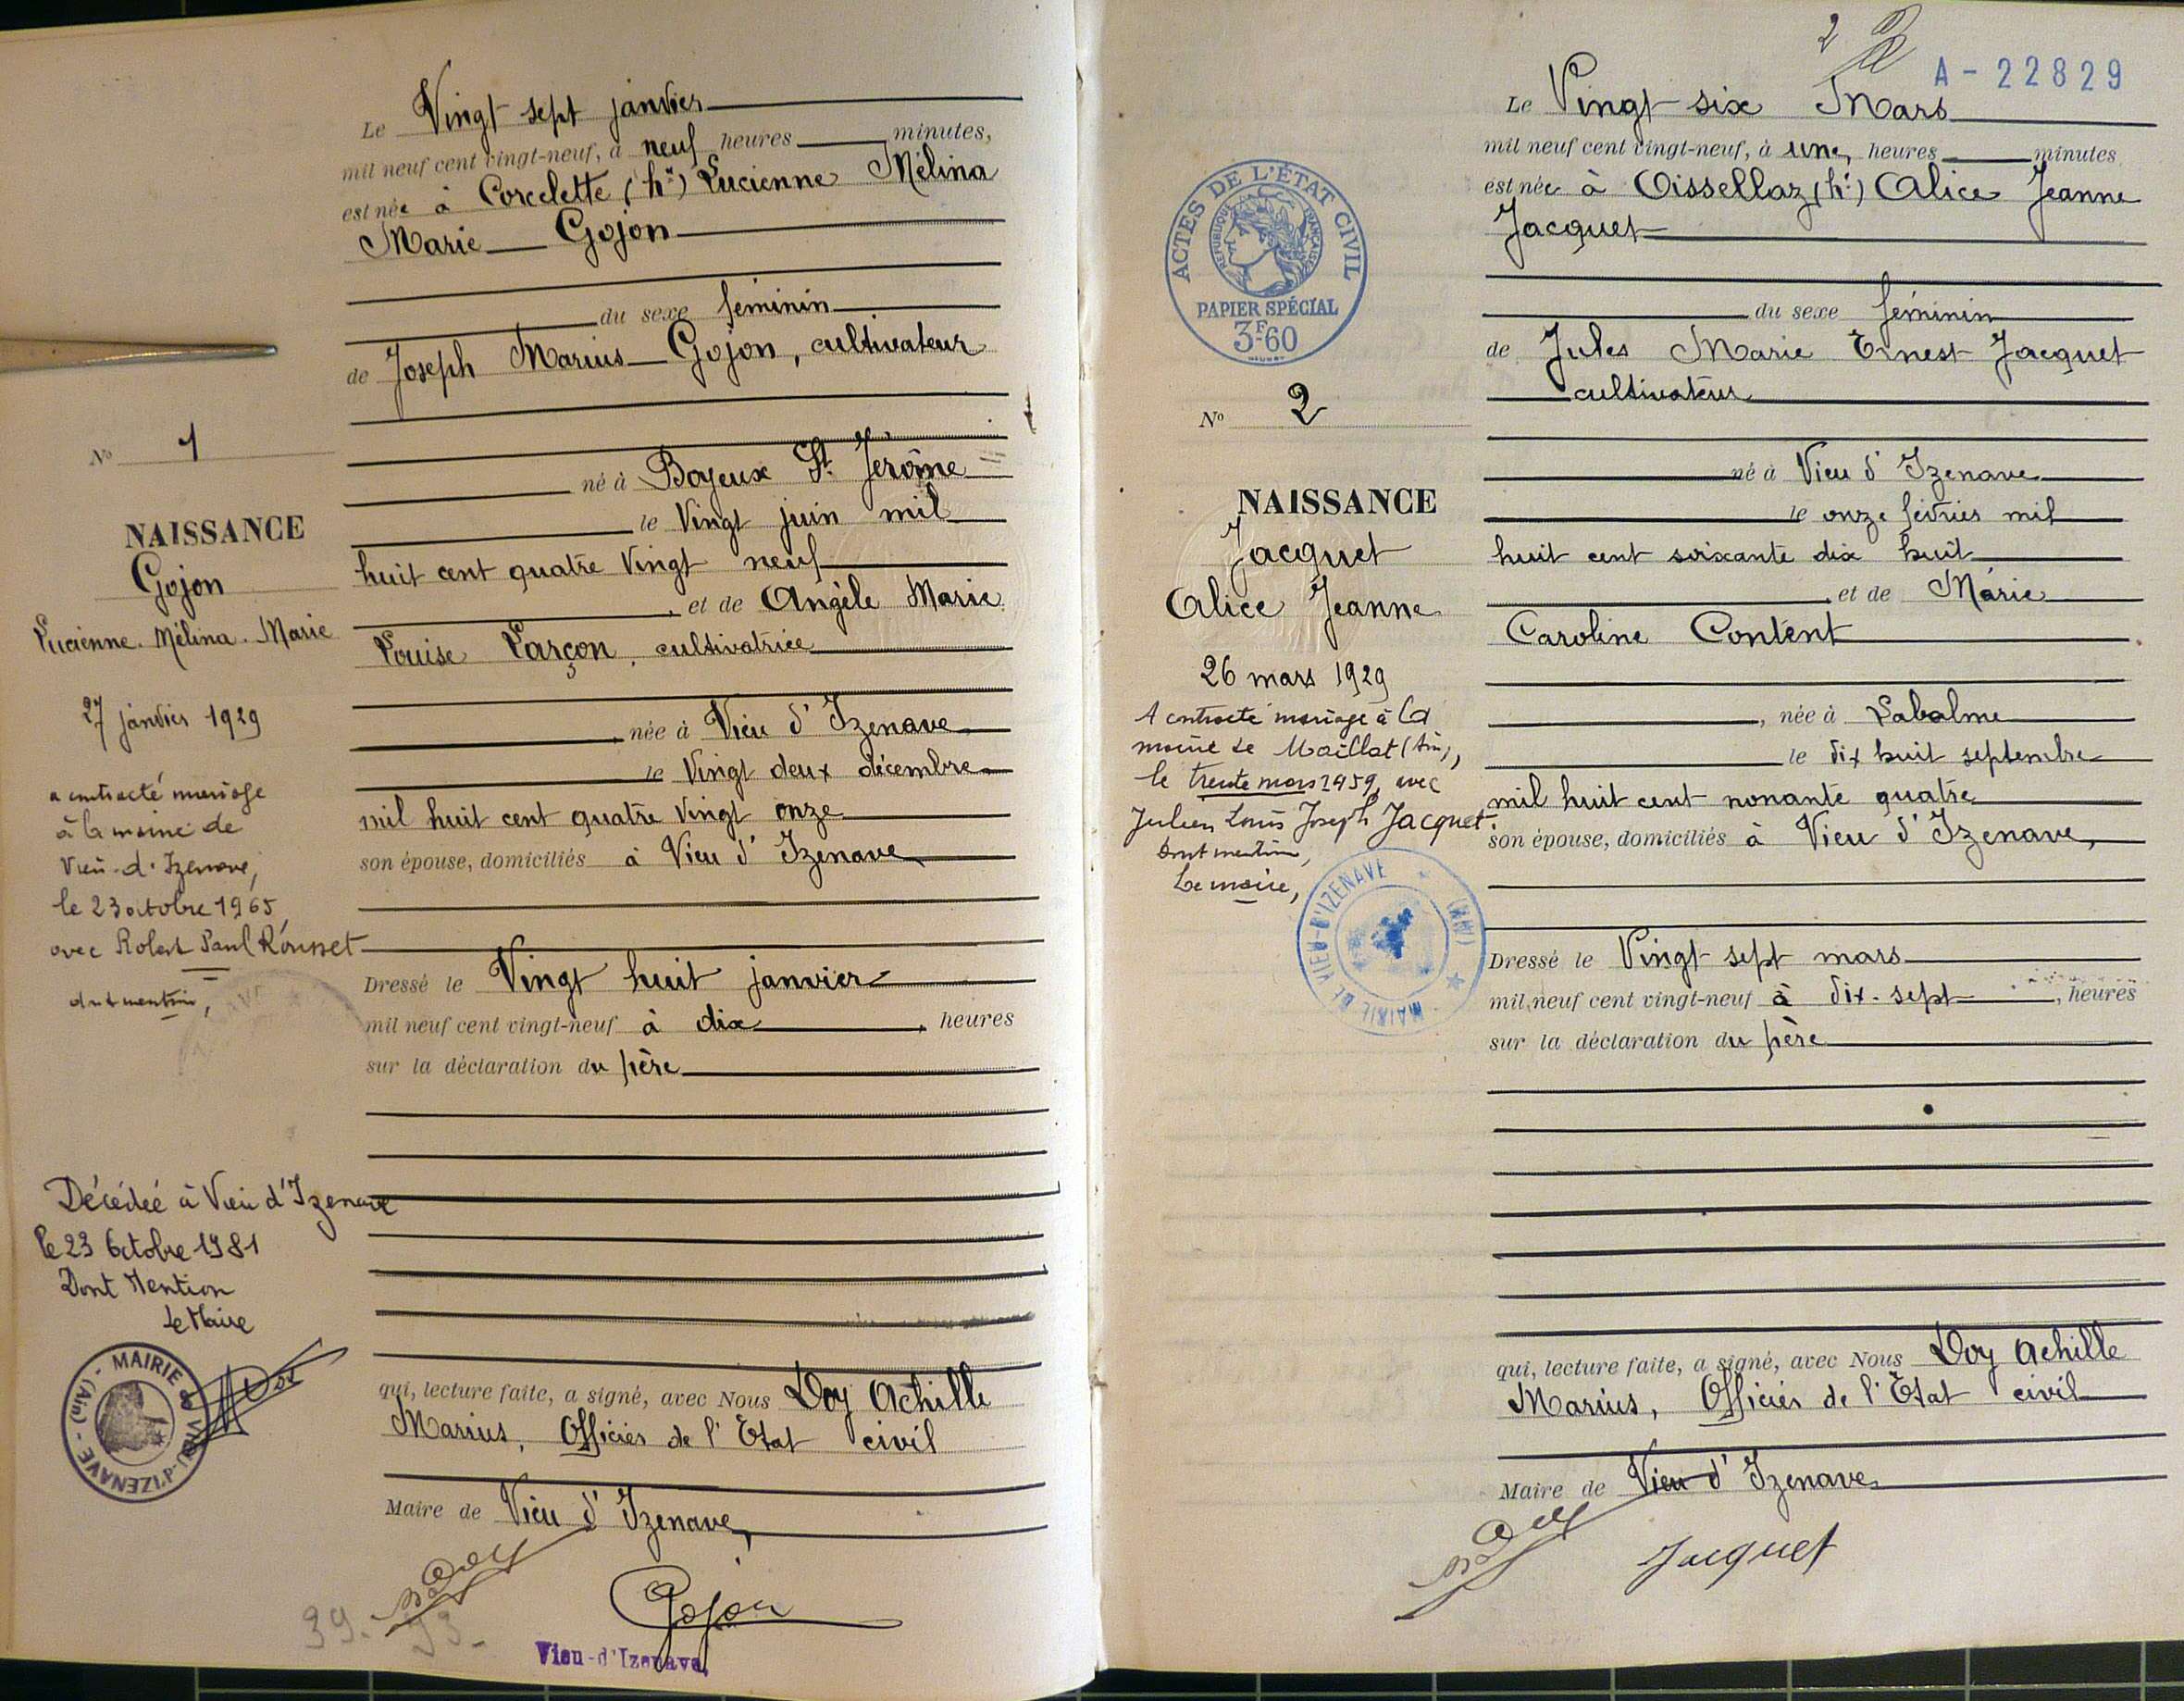 Le Vingt sept janvier
mil neuf cent vingt-neuf, à neuf heures minutes,
est née à Corcelette (hau) Lucienne Mélina
Marie Gojon
du sexe féminin
de Joseph Marius Gojon, cultivateur
né à Boyeux St. Jérôme
le Vingt juin mil
huit cent quatre vingt neuf
, et de Angèle Marie
Louise Larçon, cultivatrice
, née à Vieu d'Izenave
le Vingt deux décembre
mil huit cent quatre vingt onze
son épouse, domiciliés à Vieu d'Izenave
Dressé le Vingt huit janvier
mil neuf cent vingt-neuf à dix, heures
sur la déclaration du père
qui, lecture faite, a signé, avec Nous Doy Achille
Marius, Officier de l'Etat civil
Maire de Vieu d'Izenave,
Gojon
39. 93.
Vieu-d'Izenave,
No 1
NAISSANCE
Gojon
Lucienne. Mélina. Marie
27 janvier 1929
a contracté mariage
à la mairie de
Vieu-d'Izenave,
le 23 octobre 1965,
avec Robert Paul Rousset
dont mention,
Décédée à Vieu d'Izenave
le 23 Octobre 1981
Dont Mention
Le Maire
MAIRIE de VIEU-d'IZENAVE - (Ain) -
2
A-22829
Le Vingt six Mars
mil neuf cent vingt-neuf, à une heures minutes
est née à Oissellaz (h.) Alice Jeanne
Jacquet
du sexe féminin
de Jules Marie Ernest Jacquet
cultivateur
né à Vieu d'Izenave
le onze février mil
huit cent soixante dix huit
, et de Marie
Caroline Content
, née à Labalme
le dix huit septembre
mil huit cent nonante quatre
son épouse, domiciliés à Vieu d'Izenave,
Dressé le Vingt sept mars
mil neuf cent vingt-neuf à dix-sept, heures
sur la déclaration du père
qui, lecture faite, a signé, avec Nous Doy Achille
Marius, Officier de l'Etat civil
Maire de Vieu d'Izenave
Jacquet
ACTES DE L'ÉTAT CIVIL
RÉPUBLIQUE FRANÇAISE
PAPIER SPÉCIAL
3F60
No 2
NAISSANCE
Jacquet
Alice Jeanne
26 mars 1929
A contracté mariage à la
mairie de Maillat (Ain),
le trente mars 1959, avec
Julien Louis Joseph Jacquet.
Dont mention,
Le maire,
MAIRIE DE VIEU-D'IZENAVE (AIN)